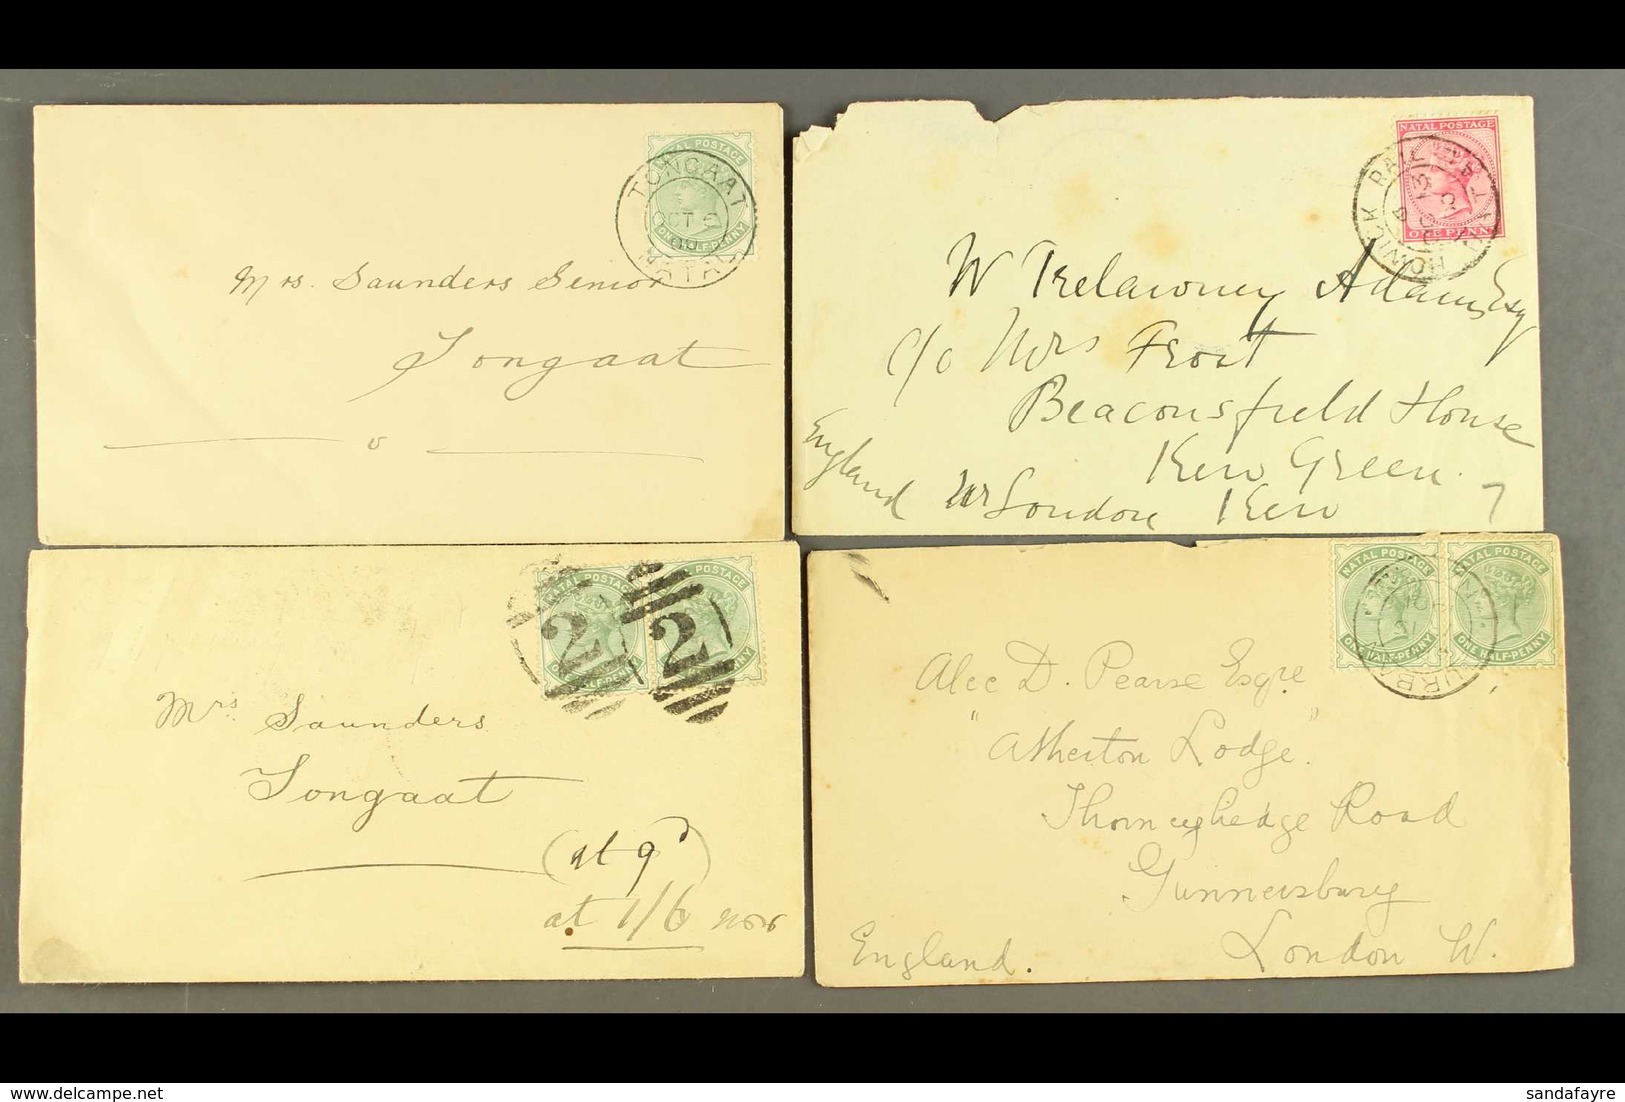 NATAL POSTAGE
ONE HALF-PENNY
TONGAAT
OCT 6
NATAL
Mrs. Saunders Senior
Tongaat
NATAL POSTAGE
ONE PENNY
HOWICK RAIL
W Trelawney Adams Esq
c/o Mrs Frost
Beaconsfield House
Kew Green
England
Nr London Kew
7
NATAL POSTAGE
ONE HALF-PENNY
NATAL POSTAGE
ONE HALF-PENNY
2
2
Mrs Saunders
Tongaat
(at 9d)
at 1/6 now
NATAL POSTAGE
ONE HALF-PENNY
NATAL POSTAGE
ONE HALF-PENNY
Alec D. Pearse Esqre
"Atherton Lodge"
Thorneyhedge Road
Gunnersbury
London W.
England.
delcampe.net
sandafayre